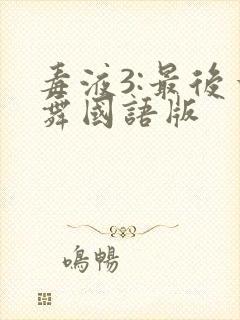 毒液3:最後一
舞國語版
鳴暢